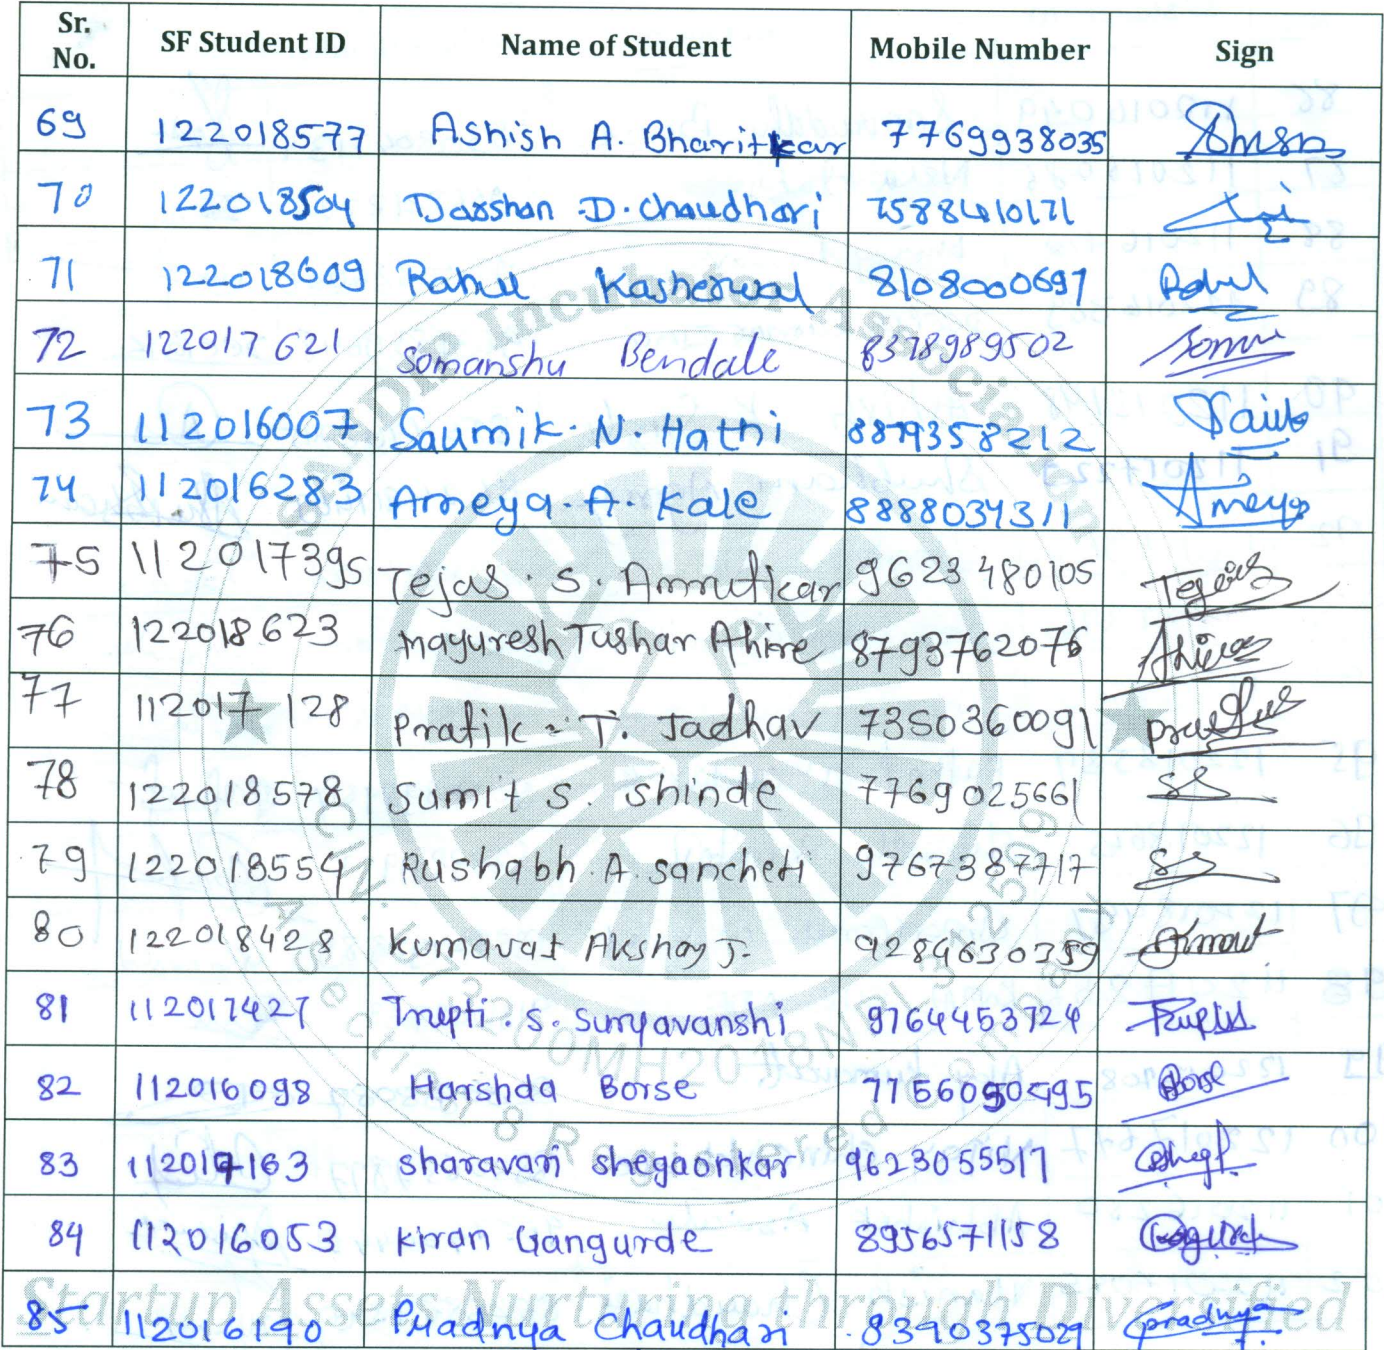 Sr. No. SF Student ID Name of Student Mobile Number Sign
69 122018577 Ashish A. Bharitkar 7769938035
70 122018504 Darshan D. Chaudhari 7588410171
71 122018609 Rahul Kasherwal 8108000697 Rahul
72 122017621 Somanshu Bendale 8378989502
73 112016007 Saumik. N. Hathi 8879358212
74 112016283 Ameya. A. Kale 8888034311 Ameya
75 112017395 Tejas. S. Amrutkar 9623480105 Tejas
76 122018623 Mayuresh Tushar Ahire 8793762076
77 112017128 Pratik T. Jadhav 7350360091
78 122018578 Sumit S. Shinde 7769025661
79 122018554 Rushabh. A. Sancheti 9767387717
80 122018428 Kumavat Akshay J. 9284630359
81 112017427 Trupti. S. Suryavanshi 9764453724
82 112016098 Harshda Borse 77560 0495
83 112017163 sharavari shegaonkar 9623055517
84 112016053 kiran Gangurde 8956571158
85 112016190 Pradnya Chaudhari 8390375029 Pradnya
SANDIP Incubator Association
CIN: 2018NPL312509
A Section 8 Registered Company
Startup Assets Nurturing through Diversified